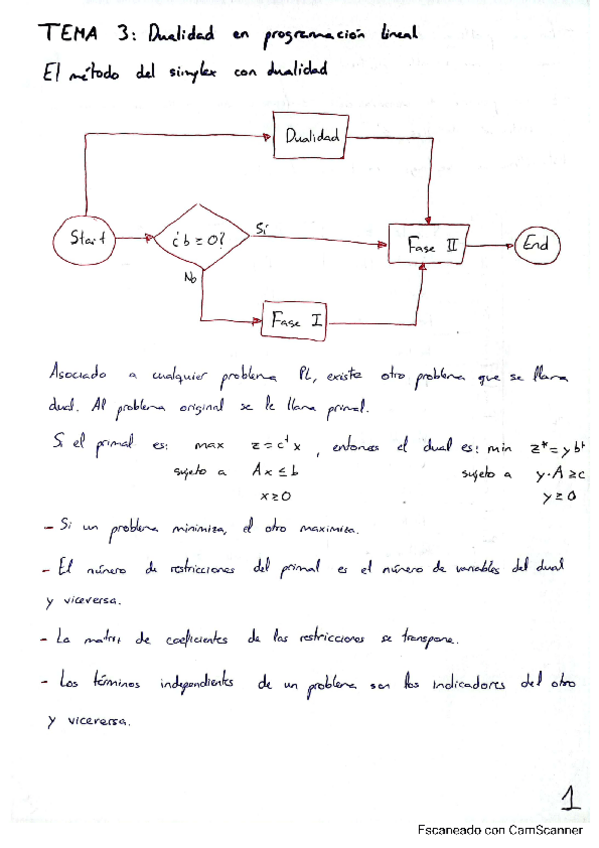 TEMA 3: Dualidad en programación lineal
El método del simplex con dualidad
Dualidad
Start
¿b≥0?
Sí
Fase II
End
No
Fase I
Asociado a cualquier problema PL, existe otro problema que se llama
dual. Al problema original se le llama primal.
Si el primal es: max z=cᵗx, entonces el dual es: min z*=ybᵗ
sujeto a Ax≤b sujeto a y·A≥c
x≥0 y≥0
- Si un problema minimiza, el otro maximiza.
- El número de restricciones del primal es el número de variables del dual
y viceversa.
- La matriz de coeficientes de las restricciones se transpone.
- Los términos independients de un problema son los indicadores del otro
y viceversa.
1
Escaneado con CamScanner